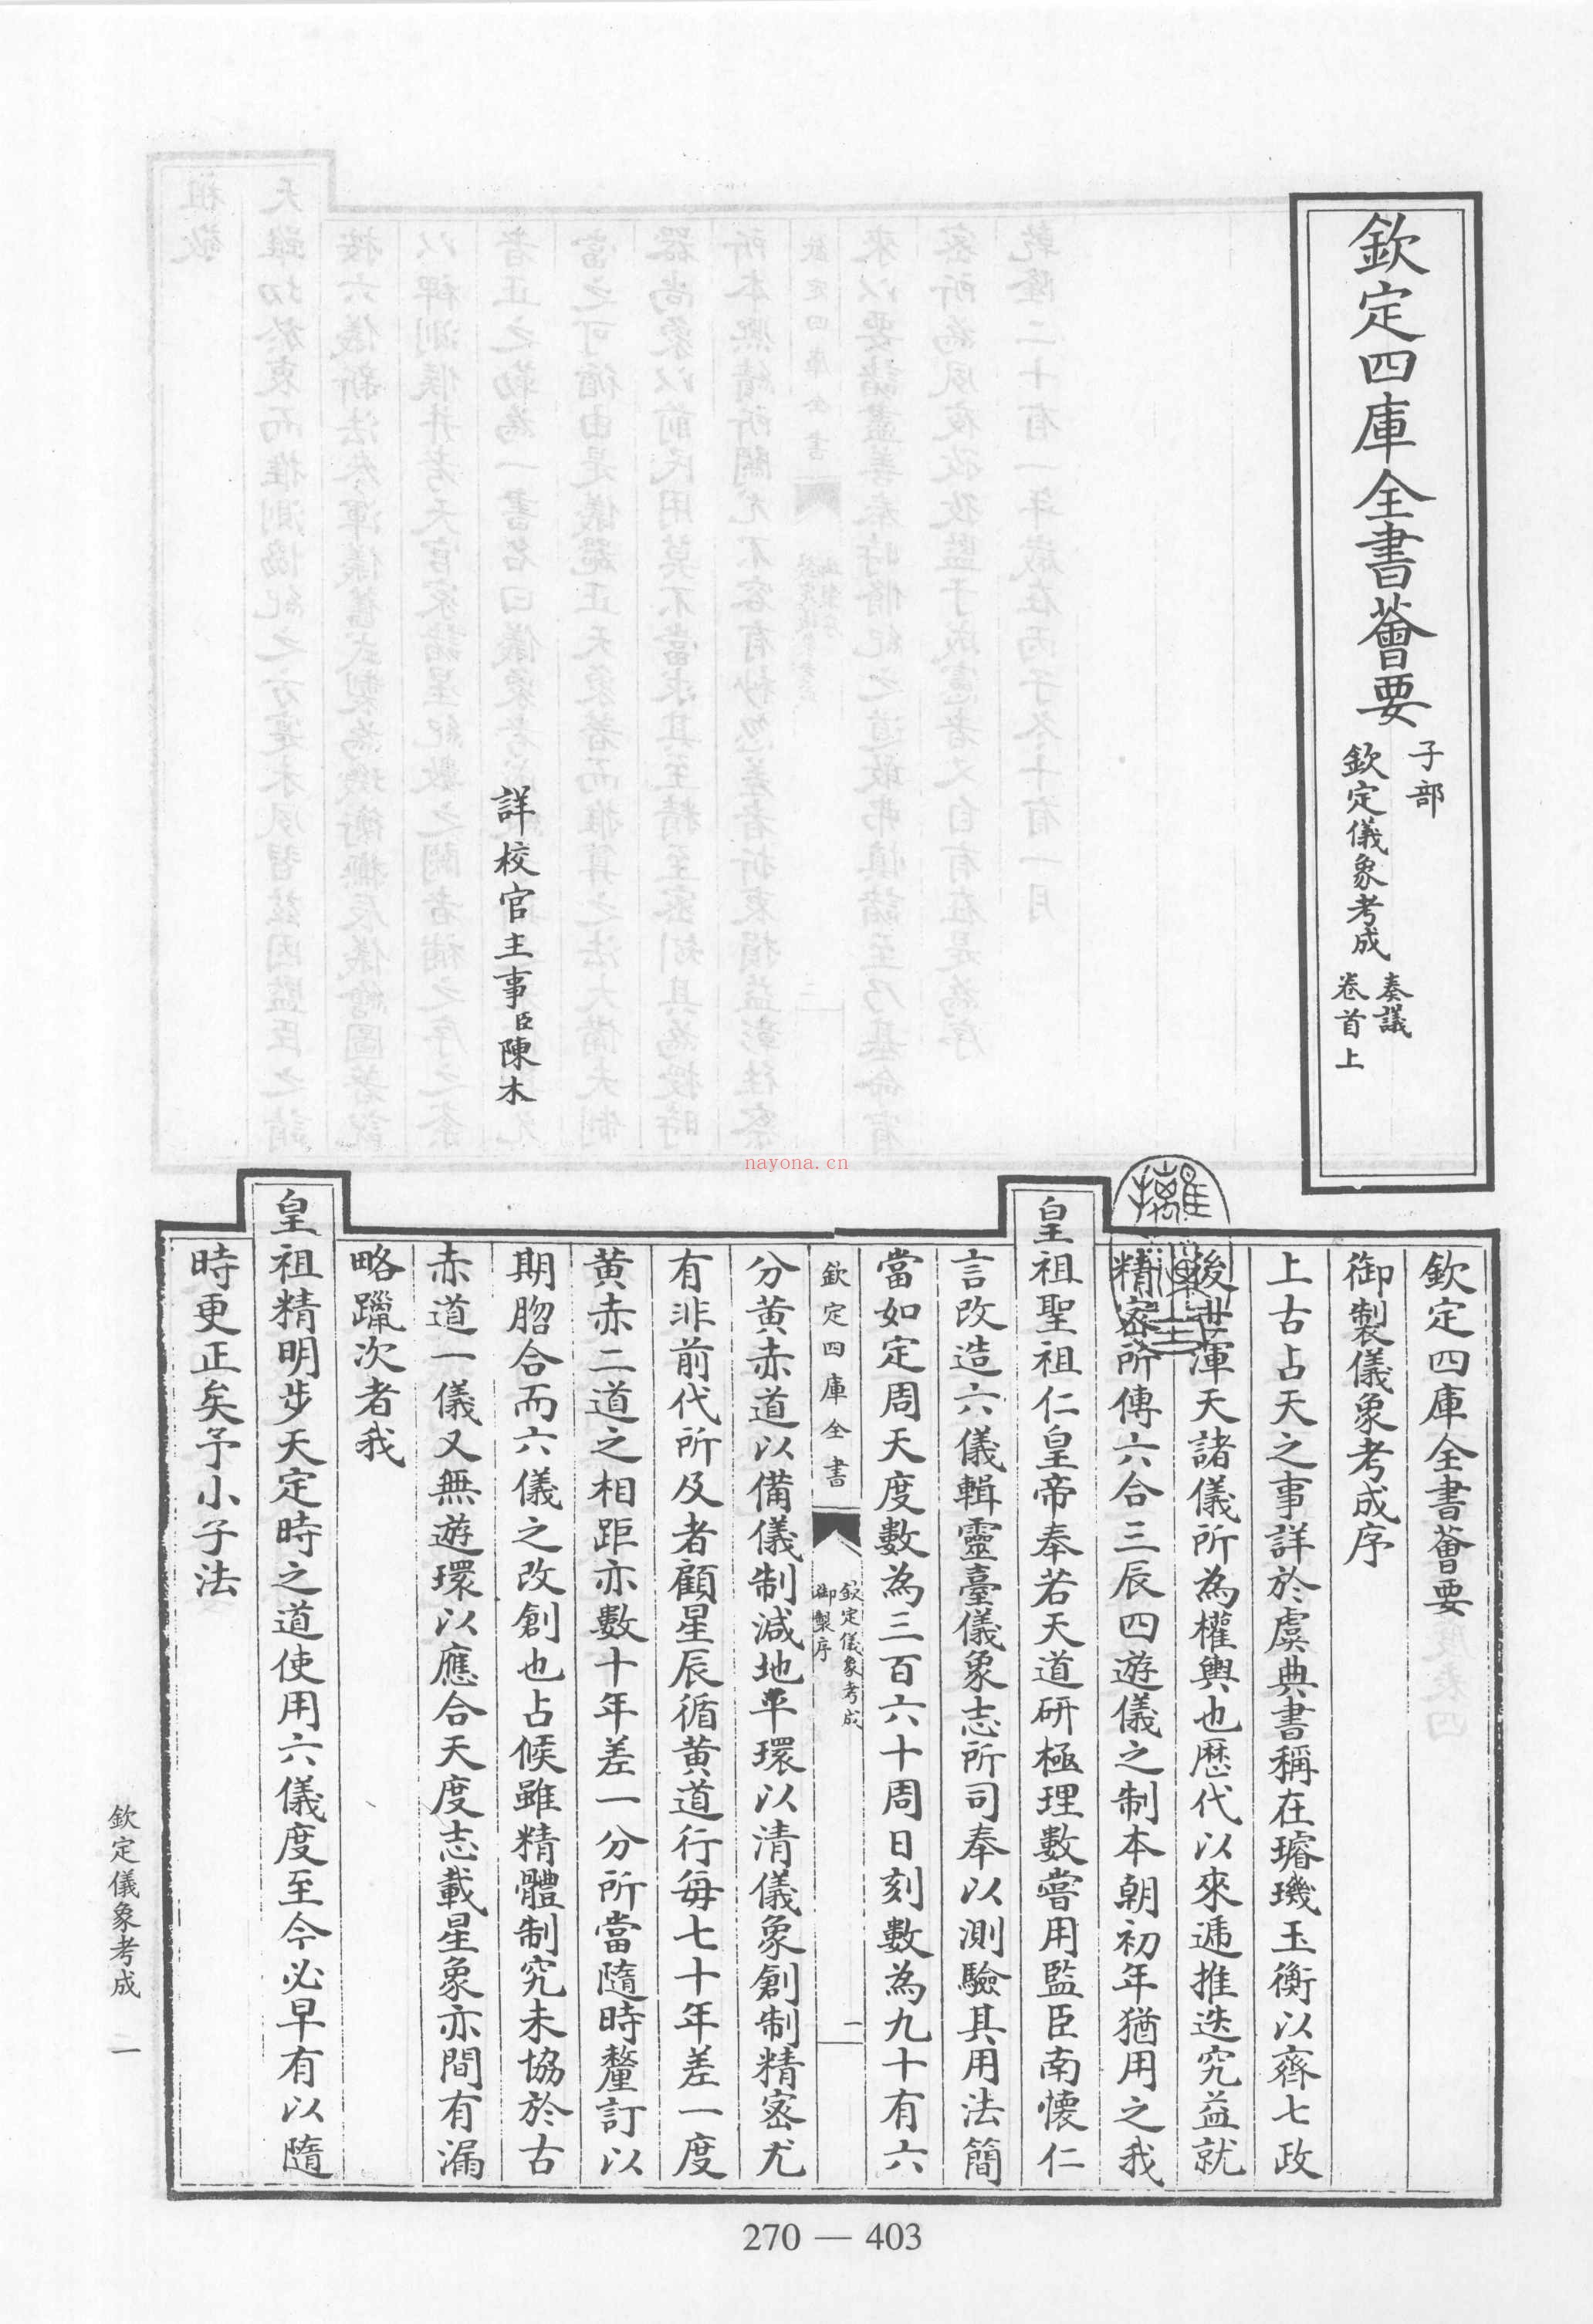 欽定四庫全書薈要
子部
欽定儀象考成
奏議
卷首上
詳校官主事臣陳木
nayona.cn
欽定四庫全書薈要
御製儀象考成序
上古占天之事詳於虞典書稱在璿璣玉衡以齊七政
後世渾天諸儀所為權輿也歴代以來遞推迭究益就
精密所傳六合三辰四遊儀之制本朝初年猶用之我
皇祖聖祖仁皇帝奉若天道研極理數嘗用監臣南懷仁
言改造六儀輯靈臺儀象志所司奉以測驗其用法簡
當如定周天度數為三百六十周日刻數為九十有六
欽定四庫全書
欽定儀象考成
御製序
一
分黄赤道以備儀制減地平環以清儀象創制精密尤
有非前代所及者顧星辰循黄道行每七十年差一度
黄赤二道之相距亦數十年差一分所當隨時釐訂以
期脗合而六儀之改創也占候雖精體制究未協於古
赤道一儀又無遊環以應合天度志載星象亦間有漏
略躐次者我
皇祖精明步天定時之道使用六儀度至今必早有以隨
時更正矣予小子法
欽定儀象考成
二
270 — 403